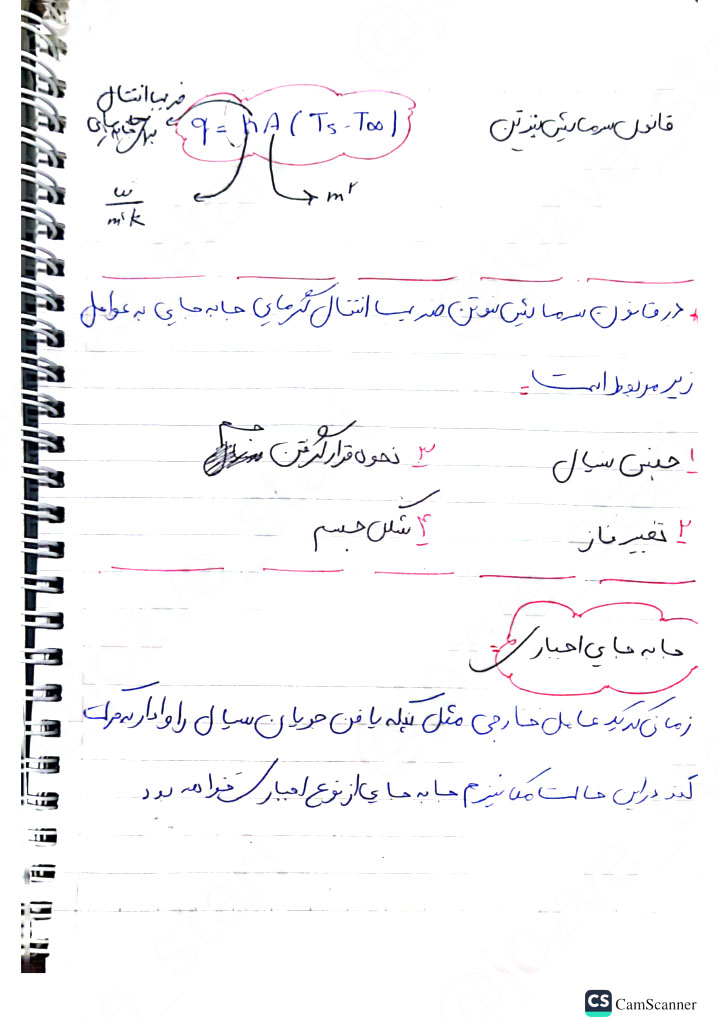 قانون سرمایش نیوتن
q = hA (Ts - T∞)
ضریب انتقال
جابه جایی
w/m²k
m²
در قانون سرمایش نیوتن ضریب انتقال گرمای جابه جایی به عوامل
زیر مربوط است =
۱ جنس سیال
۳ نحوه قرار گرفتن جسم
۲ تغییر فاز
۴ شکل جسم
جابه جایی اجباری =
زمانی که یک عامل خارجی مثل یا فن جریان سیال را وادار به حرکت
کند در این حالت مکانیزم جابه جایی از نوع اجباری خواهد بود
CS CamScanner